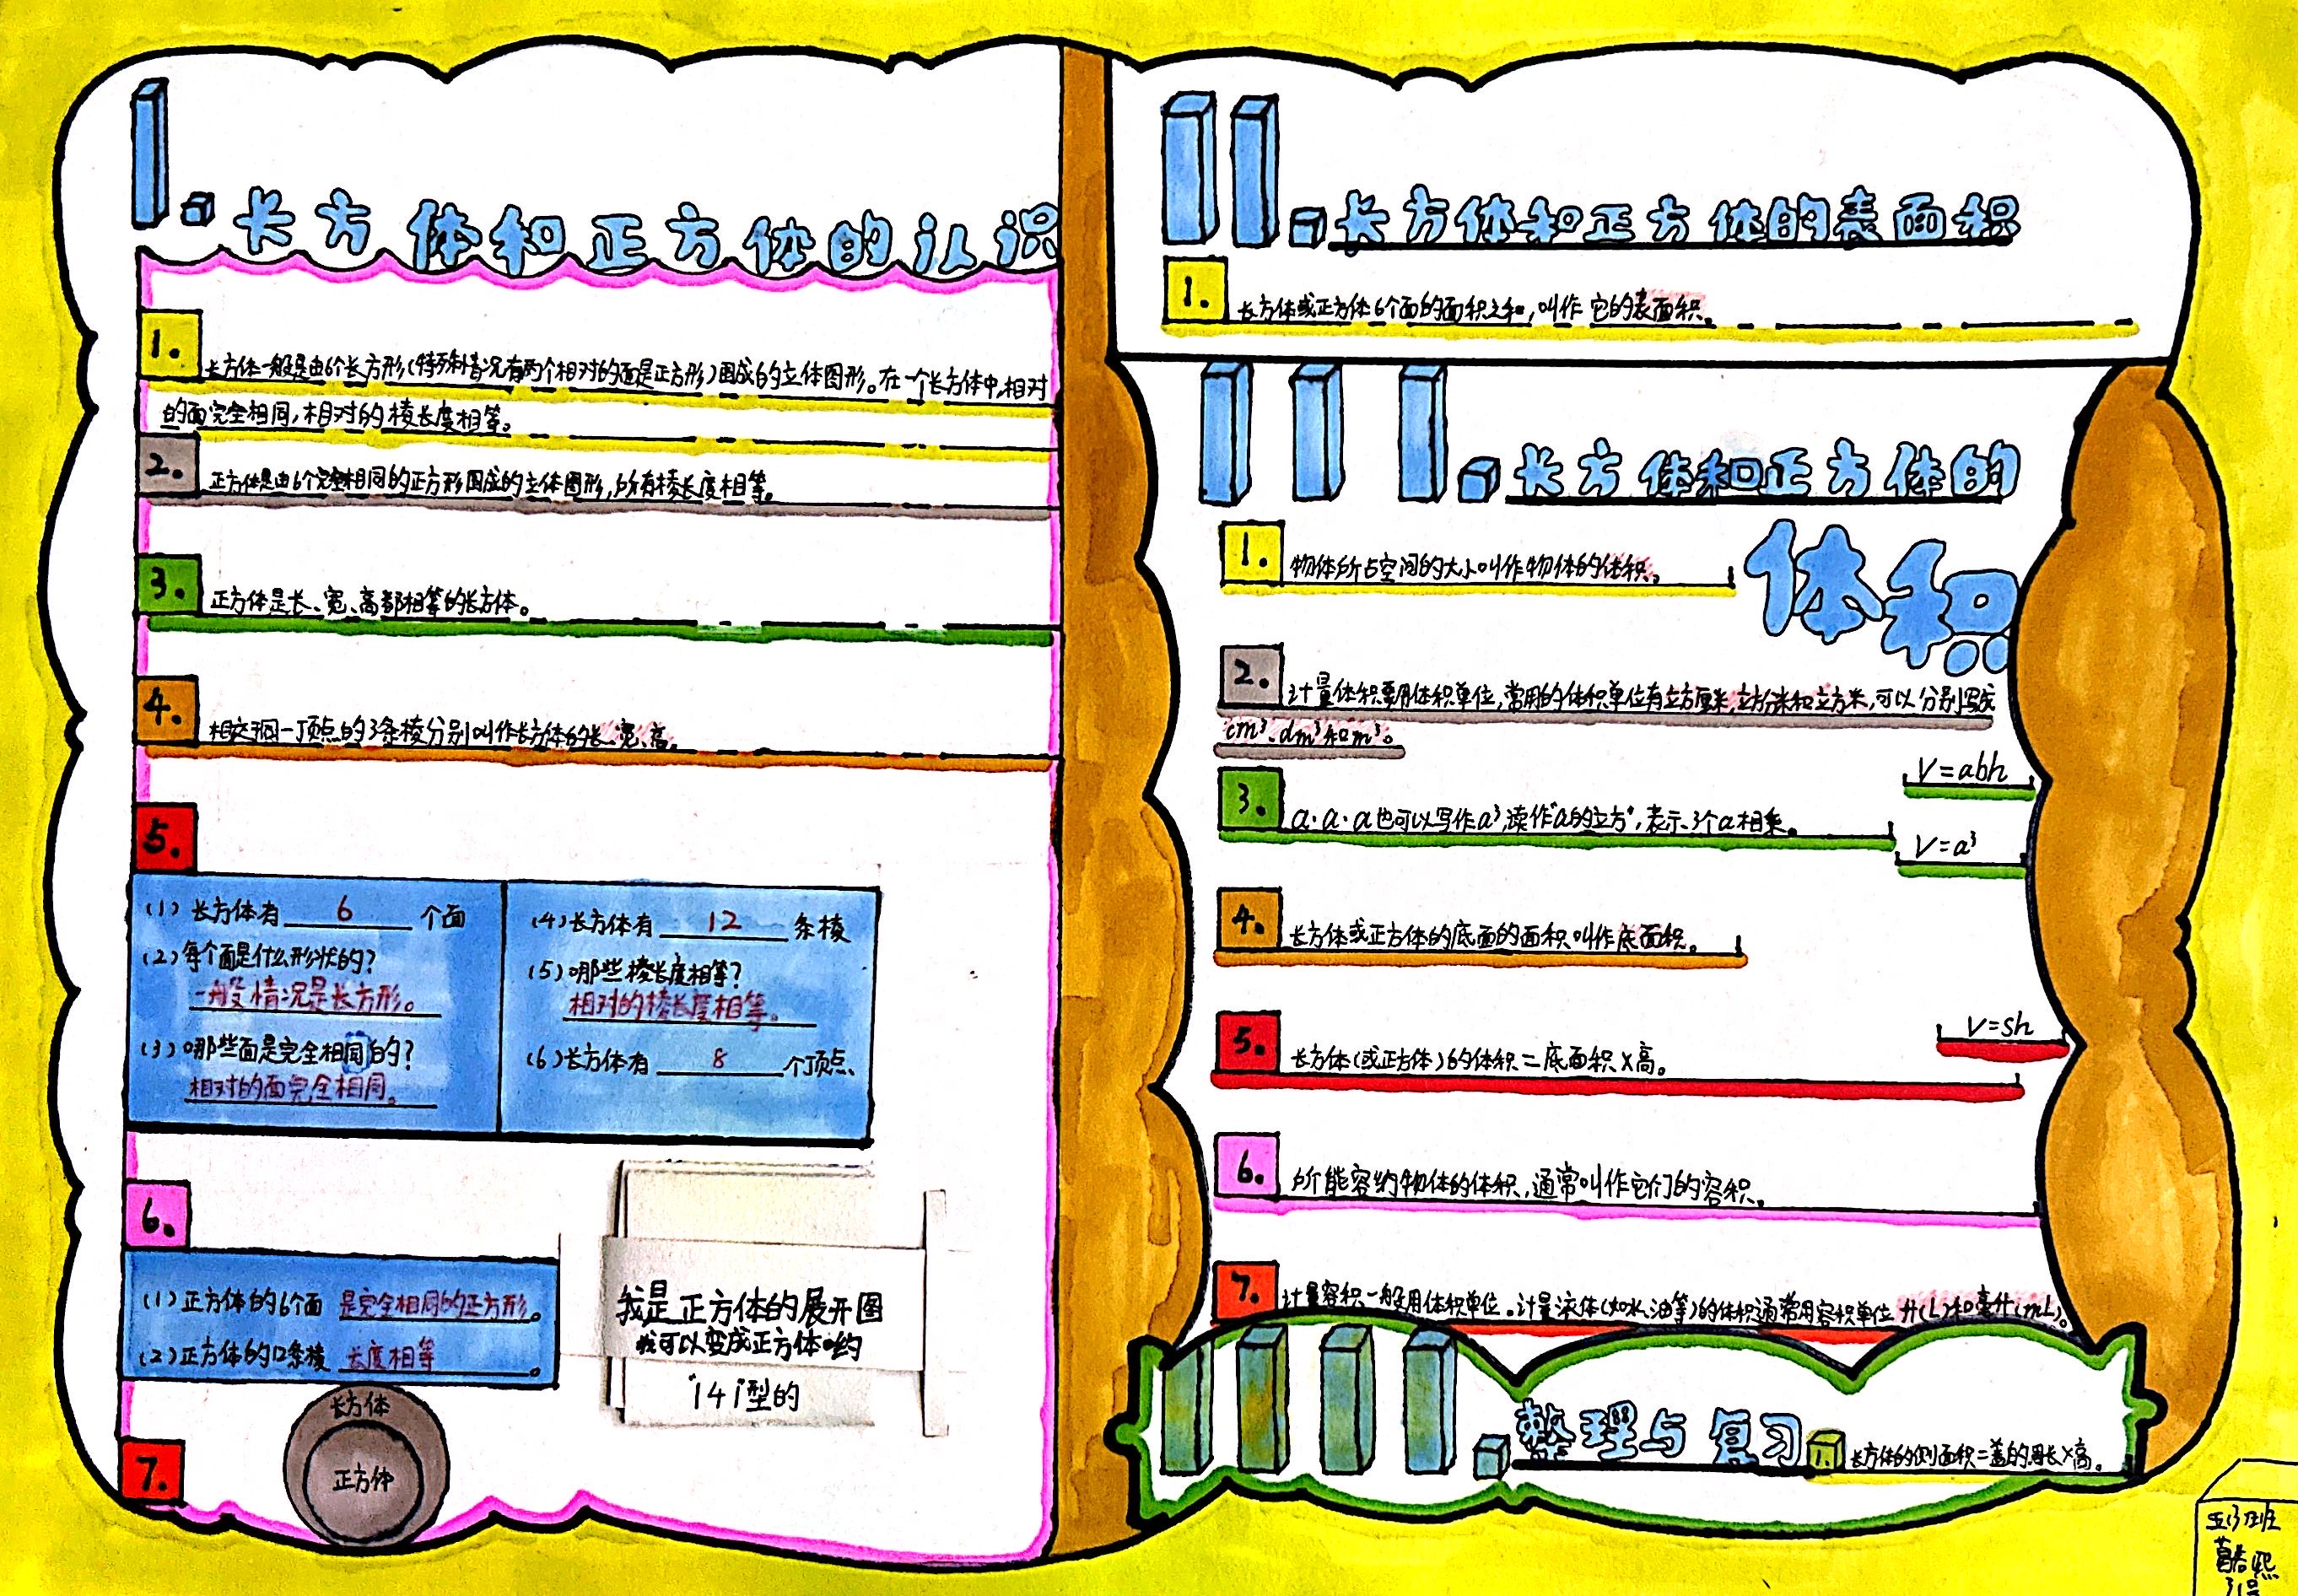 I.长方体和正方体的认识
1.
长方体一般是由6个长方形(特殊情况有两个相对的面是正方形)围成的立体图形。在一个长方体中,相对
的面完全相同,相对的棱长度相等。
2.
正方体是由6个完全相同的正方形围成的立体图形,所有棱长度相等。
3.
正方体是长、宽、高都相等的长方体。
4.
相交于同一顶点的3条棱分别叫作长方体的长、宽、高。
5.
(1)长方体有 6 个面
(2)每个面是什么形状的?
一般情况是长方形。
(3)哪些面是完全相同的?
相对的面完全相同。
(4)长方体有 12 条棱
(5)哪些棱长度相等?
相对的棱长度相等。
(6)长方体有 8 个顶点、
6.
(1)正方体的6个面 是完全相同的正方形。
(2)正方体的12条棱 长度相等。
我是正方体的展开图
我可以变成正方体哟
"141"型的
7.
长方体
正方体
II.长方体和正方体的表面积
1.
长方体或正方体6个面的面积之和,叫作它的表面积。
III.长方体和正方体的
体积
1.
物体所占空间的大小叫作物体的体积。
2.
计量体积要用体积单位,常用的体积单位有立方厘米,立方分米和立方米,可以分别写成
cm³、dm³和m³。
V=abh
3.
a·a·a也可以写作a³,读作"a的立方",表示3个a相乘。
V=a³
4.
长方体或正方体的底面的面积叫作底面积。
V=sh
5.
长方体(或正方体)的体积=底面积×高。
6.
所能容纳物体的体积,通常叫作它们的容积。
7.
计量容积一般用体积单位。计量液体(如水、油等)的体积通常用容积单位升(L)和毫升(mL)。
IIII.整理与复习
1.
长方体的侧面积=盖的周长×高。
五(3)班
31号